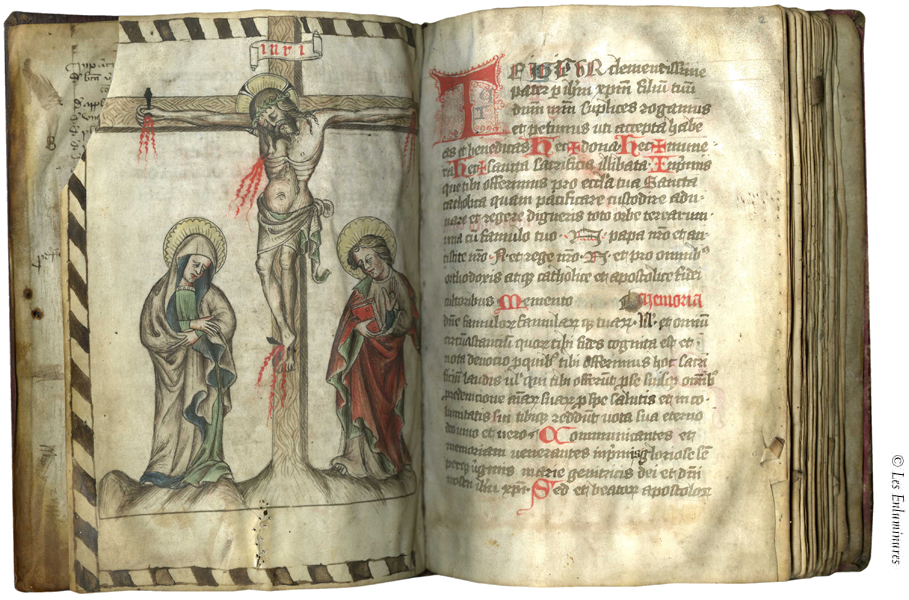 inri
TE IGITUR clementissime
pater p ihm xpm filiu tuu
dnm nrm Suplices rogamus
et petimus uti accepta habe
as et benedicas Hec dona Hec mune
ra Hec Sancta Sacrificia illibata Inprimis
que tibi offerimus pro eccla tua Sancta
catholica quam pacificare custodire adu
nare et regere digneris toto orbe terrarum
una cu famulo tuo papa nro et an
tistite nro N et rege nro N et pro omnib
orthodoxis atqz catholice et apostolice fidei
cultoribus Memento Memoria
dne famulor famularq tuar N et omniu
circustantiu quor tibi fides cognita est et
nota deuocio p quib tibi offerimus hoc sacri
ficiu laudis ul qui tibi offerut p se suisq omib
p redempcione aiar suar p spe salutis et inco
lumitatis sue tibiqz reddut uota sua eterno
deo uiuo et uero Communicantes et
memoriam uenerantes inprimis gloriose se
uirginis marie genitricis dei et dni
nostri ihu xpi Sed et beator apostolor
© Les Enluminures